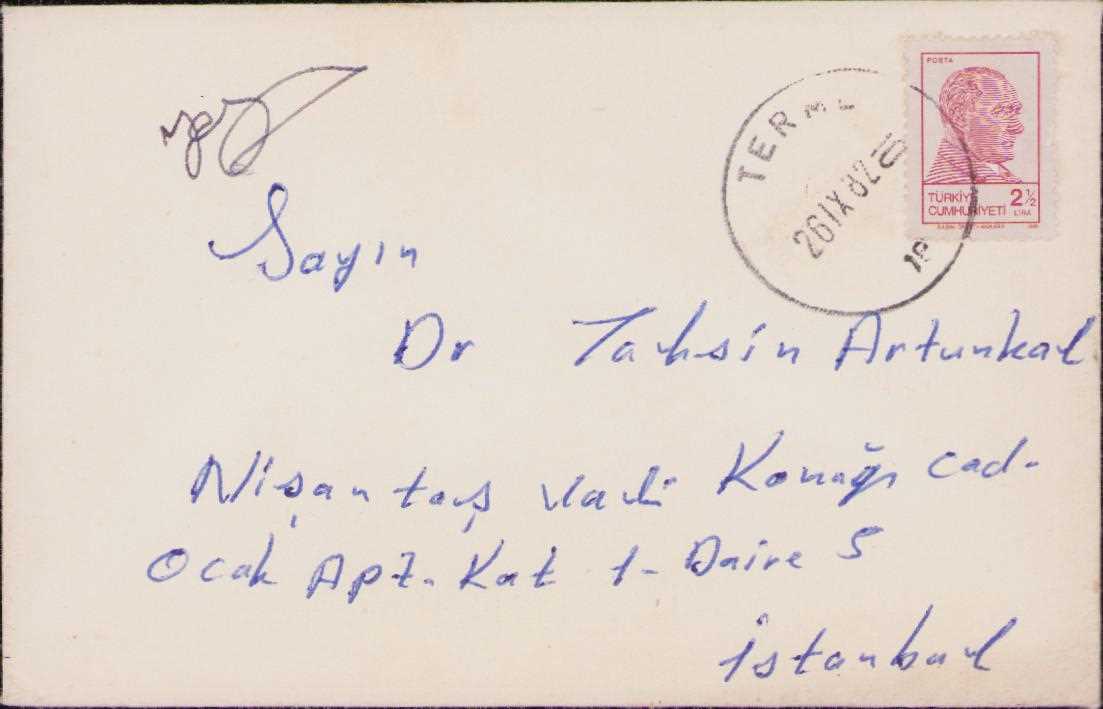 POSTA
TÜRKİYE
CUMHURİYETİ
2 ½
LİRA
TERME
26 IX 82
Sayın
Dr Tahsin Artunkal
Nişantaş Vali Konağı Cad-
Ocak Apt. Kat 1- Daire 5
İstanbul